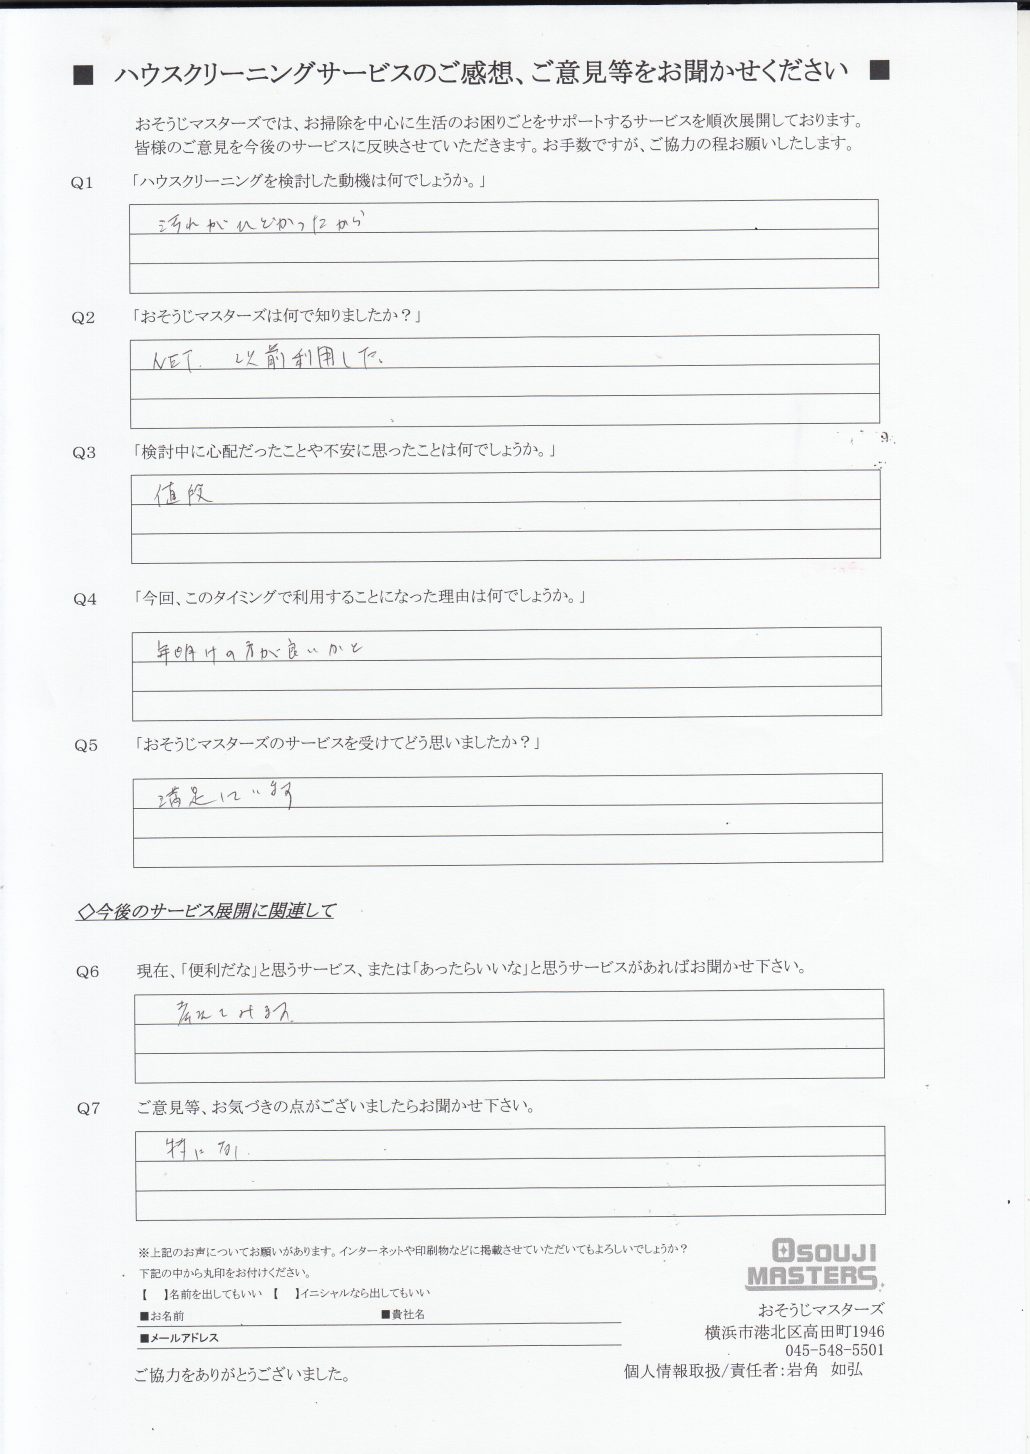 ■ ハウスクリーニングサービスのご感想、ご意見等をお聞かせください ■
おそうじマスターズでは、お掃除を中心に生活のお困りごとをサポートするサービスを順次展開しております。
皆様のご意見を今後のサービスに反映させていただきます。お手数ですが、ご協力の程お願いしたします。
Q1 「ハウスクリーニングを検討した動機は何でしょうか。」
汚れがひどかったから
Q2 「おそうじマスターズは何で知りましたか？」
NET. 以前利用した。
Q3 「検討中に心配だったことや不安に思ったことは何でしょうか。」
値段
Q4 「今回、このタイミングで利用することになった理由は何でしょうか。」
年明けの方が良いかと
Q5 「おそうじマスターズのサービスを受けてどう思いましたか？」
満足しています
◇今後のサービス展開に関連して
Q6 現在、「便利だな」と思うサービス、または「あったらいいな」と思うサービスがあればお聞かせ下さい。
考えてみます
Q7 ご意見等、お気づきの点がございましたらお聞かせ下さい。
特になし
※上記のお声についてお願いがあります。インターネットや印刷物などに掲載させていただいてもよろしいでしょうか？
下記の中から丸印をお付けください。
【　】名前を出してもいい 【　】イニシャルなら出してもいい
■お名前 ■貴社名
■メールアドレス
ご協力をありがとうございました。
OSOUJI
MASTERS
おそうじマスターズ
横浜市港北区高田町1946
045-548-5501
個人情報取扱/責任者：岩角 如弘